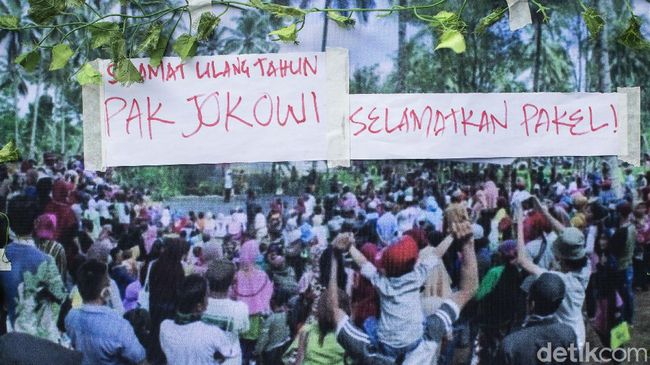 SELAMAT ULANG TAHUN
PAK JOKOWI
SELAMATKAN PAKEL!
detikcom